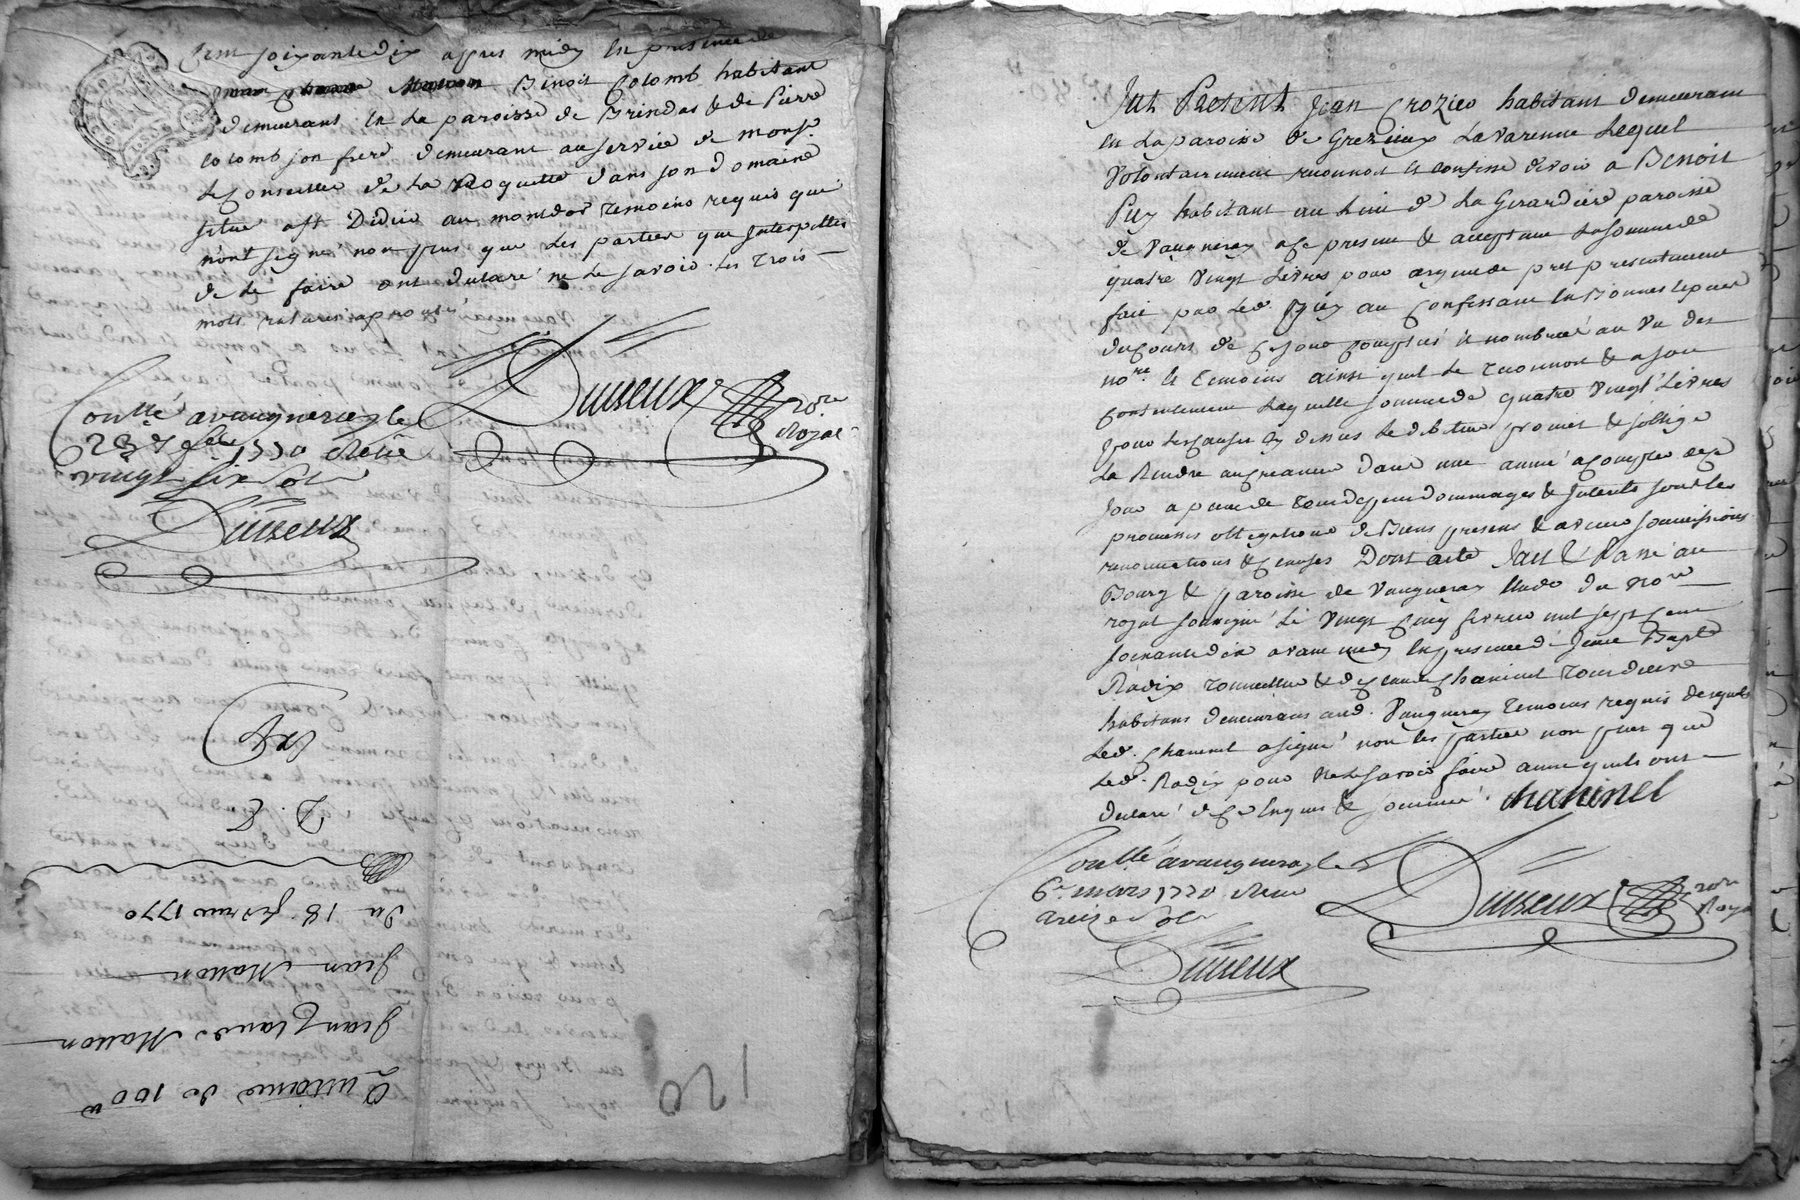 Cent soixante dix apres midy en presence de
Benoit Colomb habitant
demeurant en la paroisse de Brindas & de Pierre
Colomb son frere demeurant au service de Monsr.
le Conseiller de la Roquette dans son domaine
situé a St Didier au montdor temoins requis qui
n'ont signé non plus que les parties que Interpellés
de le faire ont declaré ne le savoir. les trois
mots raturés aprouvés
Dusseux nore.
Royal
Contllé a vaugneray le
1770 Reçu
vingt six sols
Dusseux
Exp
D. C.
du 18 fevrier 1770
Jean Matton
Jean Claude Matton
Quittance de 100 #
120
Fut Present Jean Crozier habitant demeurant
en la paroisse de Grezieux Lavarenne Lequel
volontairement reconnoit et confesse devoir a Benoit
Puy habitant au lieu de la Girardiere paroisse
de Vaugneray ice present & acceptant la somme de
quatre vingt Livres pour argent de pret presentement
fait par led. Puy au Confessant en Bonnes especes
du cours de ce jour Comptées & nombrées au vu des
nore. et temoins ainsi quil le reconnoit & a son
contentement laquelle somme de quatre vingt Livres
pour les causes cy dessus le debiteur promet & soblige
La Rendre au Creancier dans une année a Compter de ce
jour a peine de tous depens dommages & Interets sous les
promesses obligations de Biens presens & avenir soumissions
renonciations & clauses Dont acte Fait & Passé au
Bourg & paroisse de Vaugneray Etude du nore
royal soussigné Le vingt cinq fevrier mil sept cent
soixante dix avant midy en presence de Jean Bapte
Radix tonnellier & de Chaninel
habitans demeurans aud. Vaugneray temoins requis desquels
Led. Chaninel a signé non les parties non plus que
Led. Radix pour ne le savoir faire ainsi quils ont
declaré de ce Enquis & sommés. chaninel
Contllé a vaugneray le
6e mars 1770 Reçu
treize sols
Dusseux nore
Royal
Dusseux